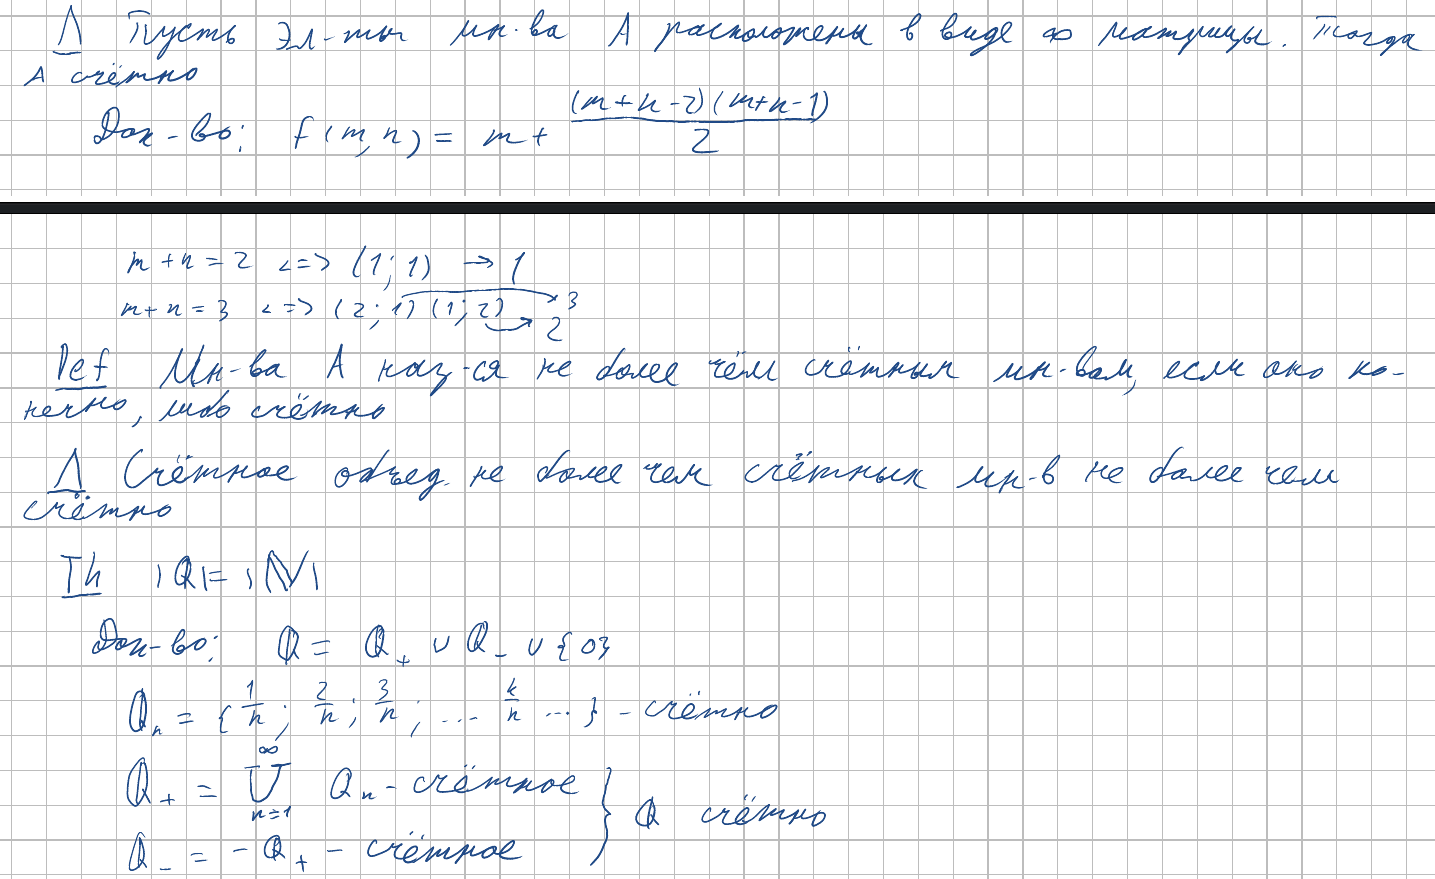 Λ Пусть эл-ты мн-ва A расположены в виде ∞ матрицы. Тогда
A счётно
Док-во: f(m,n) = m + (m+n-2)(m+n-1)/2
m+n=2 <=> (1;1) → 1
m+n=3 <=> (2;1) (1;2) → 2 → 3
Def Мн-ва A наз-ся не более чем счётным мн-вом, если оно ко-
нечно, либо счётно
Λ Счётное объед. не более чем счётных мн-в не более чем
счётно
Th |Q|=|ℕ|
Док-во: Q = Q₊ ∪ Q₋ ∪ {0}
Qₙ = {1/n; 2/n; 3/n; ... k/n ...} - счётно
Q₊ = ∪_{n=1}^{∞} Qₙ - счётное
Q₋ = -Q₊ - счётное } Q счётно